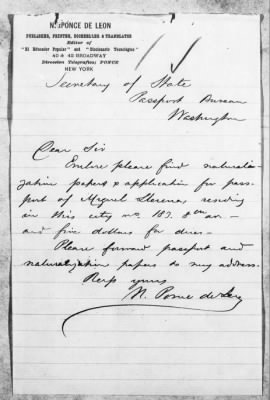 N. PONCE DE LEON
PUBLISHER, PRINTER, BOOKSELLER & TRANSLATER
Editor of
"El Educador Popular" and "Diccionario Tecnologico"
40 & 42 BROADWAY
Direccion Telegrafica; PONCE
NEW YORK
Secretary of State
Passport Bureau
Washington
Dear Sir
Enclose please find naturali-
zation papers & application for pass-
port of Miguel Llerena, residing
in this city no 187. 8th av. -
and five dollars for dues -
Please forward passport and
naturalization papers to my address.
Resp yours
N. Ponce de Leon